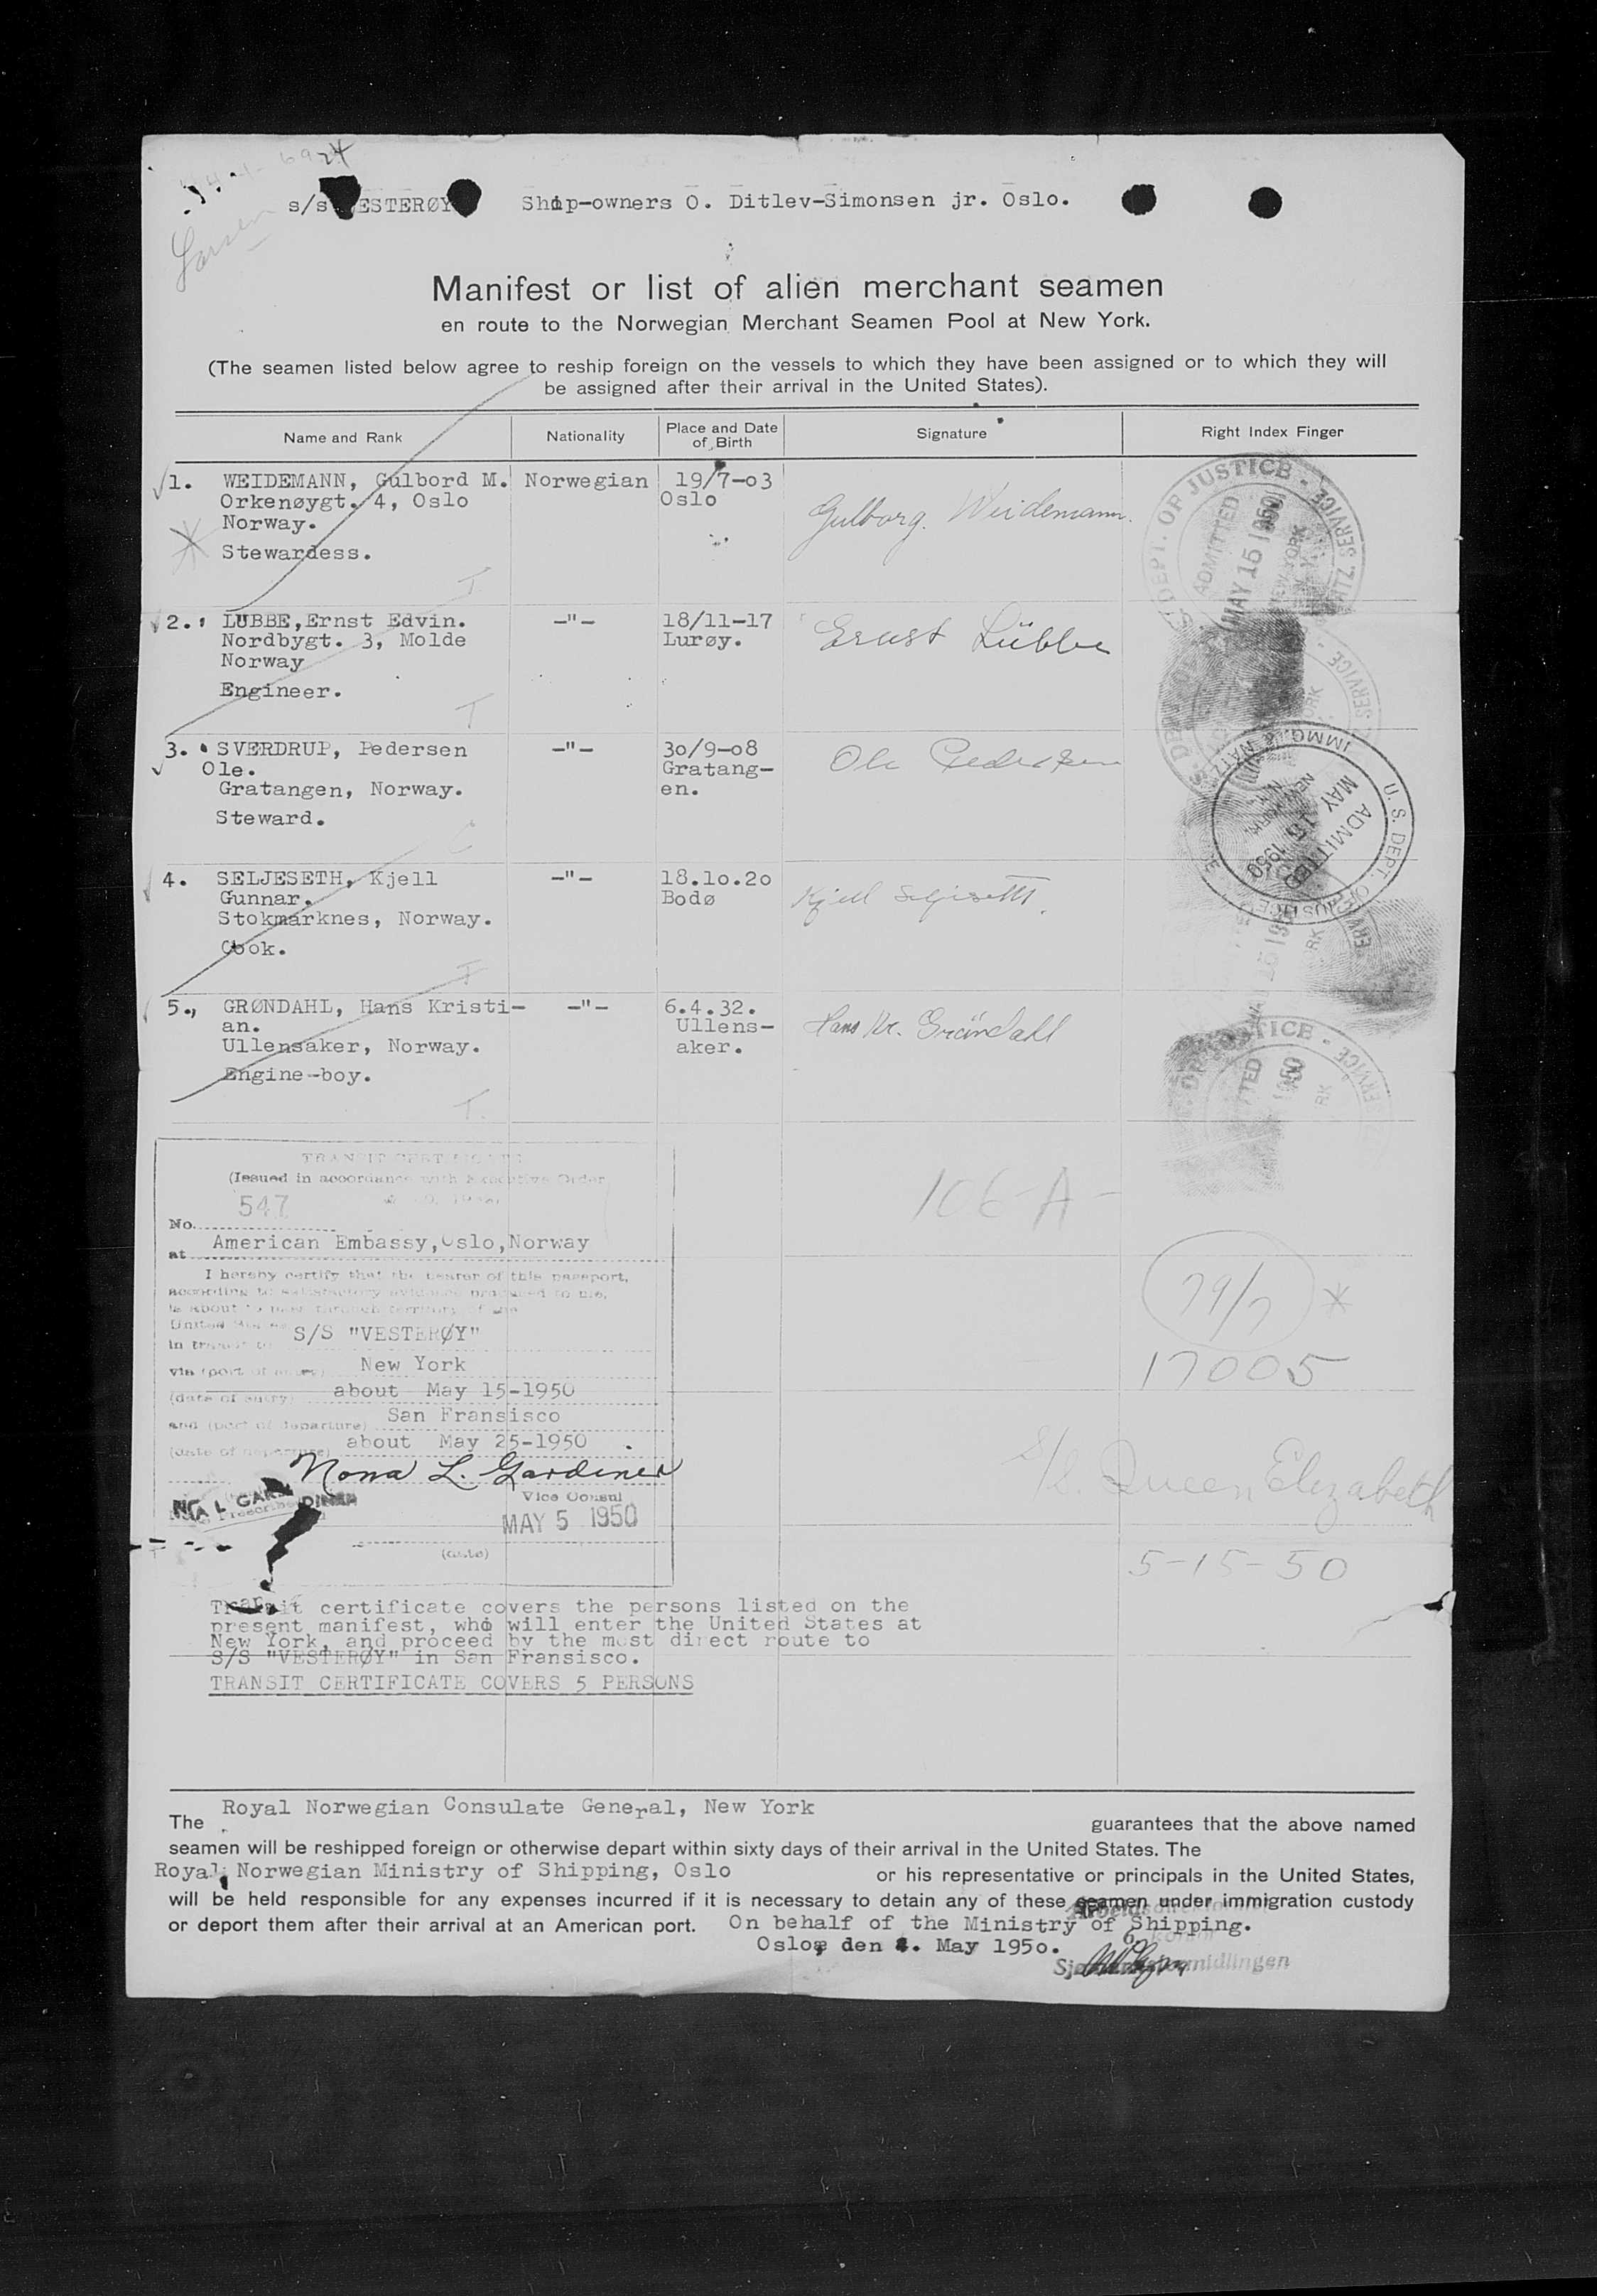 24
Larsen
s/s ESTERØY Ship-owners O. Ditlev-Simonsen jr. Oslo.
Manifest or list of alien merchant seamen
en route to the Norwegian Merchant Seamen Pool at New York.
(The seamen listed below agree to reship foreign on the vessels to which they have been assigned or to which they will
be assigned after their arrival in the United States).
Name and Rank Nationality Place and Date of Birth Signature Right Index Finger
1. WEIDEMANN, Gulbord M. Norwegian 19/7-03
Orkenøygt. 4, Oslo Oslo
Norway. Gulborg. Weidemann.
Stewardess.
DEPT. OF JUSTICE - SERVICE
ADMITTED
MAY 15 1950
NEW YORK
2. LUBBE,Ernst Edvin. -"- 18/11-17
Nordbygt. 3, Molde Lurøy. Ernst Lübbe
Norway
Engineer.
3. SVERDRUP, Pedersen -"- 30/9-08
Ole. Gratang- Ole Pedersen
Gratangen, Norway. en.
Steward.
U. S. DEPT. OF JUSTICE IMMG. & NATZ.
ADMITTED
MAY 15 1950
4. SELJESETH, Kjell -"- 18.10.20
Gunnar. Bodø Kjell Seljeseth.
Stokmarknes, Norway.
Cook.
5., GRØNDAHL, Hans Kristi- -"- 6.4.32.
an. Ullens- Hans Kr. Gröndahl
Ullensaker, Norway. aker.
Engine-boy.
TRANSIT CERTIFICATE
(Issued in accordance with Executive Order
547
No.
at American Embassy, Oslo, Norway
I hereby certify that the bearer of this passport,
according to satisfactory evidence produced to me,
is about to pass through territory of the
United
in transit to S/S "VESTERØY"
via (port of entry) New York
(date of entry) about May 15-1950
and (port of departure) San Fransisco
(date of departure) about May 25-1950 .
Nona L. Gardiner
Vice Consul
MAY 5 1950
(date)
106-A-
79/7
17005
S/S. Queen Elizabeth
5-15-50
Transit certificate covers the persons listed on the
present manifest, who will enter the United States at
New York, and proceed by the most direct route to
S/S "VESTERØY" in San Fransisco.
TRANSIT CERTIFICATE COVERS 5 PERSONS
The Royal Norwegian Consulate General, New York guarantees that the above named
seamen will be reshipped foreign or otherwise depart within sixty days of their arrival in the United States. The
Royal Norwegian Ministry of Shipping, Oslo or his representative or principals in the United States,
will be held responsible for any expenses incurred if it is necessary to detain any of these seamen under immigration custody
or deport them after their arrival at an American port. On behalf of the Ministry of Shipping.
Oslo, den 4. May 1950.